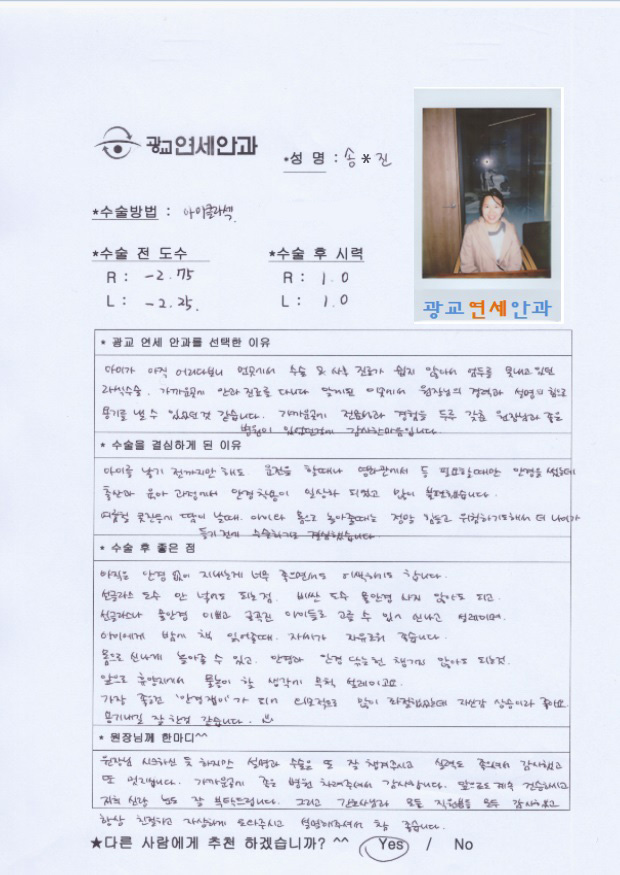 광교연세안과
*성 명 : 송*진
*수술방법 : 아이클라섹
*수술 전 도수
*수술 후 시력
R : -2.75
R : 1.0
L : -2.25.
L : 1.0
광교연세안과
* 광교 연세 안과를 선택한 이유
아이가 아직 어리다보니 수술 및 사후 진료가 쉽지 않아서 엄두를 못내고 있던
라식수술. 가까운곳에 안과 진료를 다니다 알게된 원장님의 설명의 힘으로
용기를 낼 수 있었던것 같습니다. 가까운곳에 경험을 두루 갖춘 원장님과 좋은
병원이 감사한마음입니다.
* 수술을 결심하게 된 이유
아이를 낳기 전까지만 해도 운전을 할때나 영화관에서 등 필요할때만 안경을 썼는데
출산과 육아 과정에서 안경착용이 일상화 되었고 많이 불편했습니다.
땀이 날때. 아이와 몸으로 놀아줄때는 정말 힘들고 위험하기도해서 더 나이가
들기전에 수술하기로 결심했습니다.
* 수술 후 좋은 점
아직은 안경 없이 지내는게 너무 좋으면서도 어색하기도 합니다.
선글라스 도수 안 넣어도 되는점. 비싼 도수 물안경 사지 않아도 되고.
선글라스나 물안경 이쁘고 아이들로 고를 수 있어 신나고 설레이며.
아이에게 밤에 책 읽어줄때. 자세가 자유로워 좋습니다.
몸으로 신나게 놀아줄 수 있고. 안경과 안경 닦는천 챙기지 않아도 되는것.
앞으로 휴양지에서 물놀이 할 생각에 무척 설레이고요.
가장 좋은건 '안경쟁이'가 되어 외모적으로 많이 자신감 상승이라 좋아요.
용기내길 잘 한것 같습니다.
* 원장님께 한마디^^
원장님 시크하신 듯 하지만 설명과 수술은 또 잘 챙겨주시고 실력도 좋으셔서 감사했고
또 멋지십니다. 가까운곳에 좋은 병원 차려주셔서 감사합니다. 앞으로도 계속 건승하시고
저희 신랑 눈도 잘 부탁드립니다. 그리고 간호사님과 모든 직원분들 모두 감사했고
항상 친절하고 자상하게 도와주시고 설명해주셔서 참 좋습니다.
★다른 사람에게 추천 하겠습니까? ^^ Yes / No